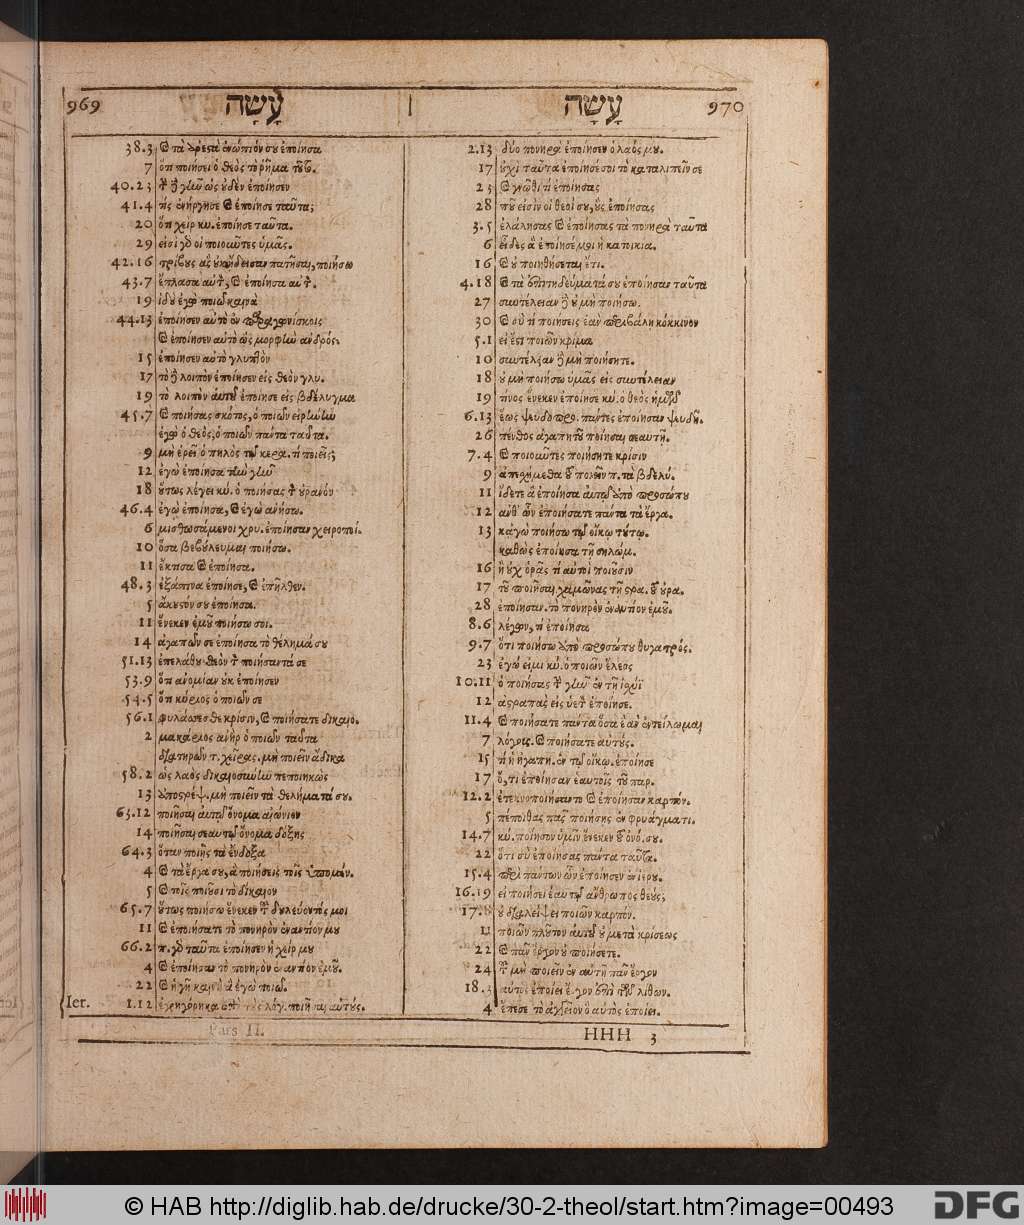 969 עָשָׂה עָשָׂה 970
38.3 καὶ τὰ ἀρεστὰ ἐνώπιόν σου ἐποίησα
7 ὅτι ποιήσει ὁ θεὸς τὸ ῥῆμα τοῦτο.
40.23 τὴν δὲ γῆν ὡς οὐδὲν ἐποίησεν
41.4 τίς ἐνήργησε καὶ ἐποίησε ταῦτα;
20 ὅτι χεὶρ κυ. ἐποίησε ταῦτα.
29 εἰσὶ γὰρ οἱ ποιοῦντες ὑμᾶς.
42.16 τρίβους ἃς οὐκ ᾔδεισαν πατῆσαι, ποιήσω
43.7 ἔπλασα αὐτὸν, καὶ ἐποίησα αὐτὸν.
19 ἰδοὺ ἐγὼ ποιῶ καινὰ
44.13 ἐποίησεν αὐτὸ ἐν παραγωνίσκοις
καὶ ἐποίησεν αὐτὸ ὡς μορφὴν ἀνδρός.
15 ἐποίησεν αὐτὸ γλυπτὸν
17 τὸ δὲ λοιπὸν ἐποίησεν εἰς θεὸν γλυ.
19 τὸ λοιπὸν αὐτοῦ ἐποίησε εἰς βδέλυγμα
45.7 καὶ ποιήσας σκότος, ὁ ποιῶν εἰρήνην
ἐγὼ ὁ θεὸς, ὁ ποιῶν πάντα ταῦτα.
9 μὴ ἐρεῖ ὁ πηλὸς τῷ κερα. τί ποιεῖς;
12 ἐγὼ ἐποίησα τὴν γῆν
18 οὕτως λέγει κύ. ὁ ποιήσας τὸν οὐρανόν
46.4 ἐγὼ ἐποίησα, καὶ ἐγὼ ἀνήσω.
6 μισθωσάμενοι χρυ. ἐποίησαν χειροποί.
10 ὅσα βεβούλευμαι ποιήσω.
11 ἔκτισα καὶ ἐποίησα.
48.3 ἐξάπινα ἐποίησε, καὶ ἐπῆλθεν.
5 ἄκουστόν σου ἐποίησα.
11 ἕνεκεν ἐμοῦ ποιήσω σοι.
14 ἀγαπῶν σε ἐποίησα τὸ θέλημά σου
51.13 ἐπελάθου θεὸν τὸν ποιήσαντά σε
53.9 ὅτι ἀνομίαν οὐκ ἐποίησεν
54.5 ὅτι κύριος ὁ ποιῶν σε
56.1 φυλάσσεσθε κρίσιν, καὶ ποιήσατε δικαιο.
2 μακάριος ἀνὴρ ὁ ποιῶν ταῦτα
διατηρῶν τ. χεῖρας. μὴ ποιεῖν ἄδικα
58.2 ὡς λαὸς δικαιοσύνην πεποιηκὼς
13 ἀποστρέψ. μὴ ποιεῖν τὰ θελήματά σου.
63.12 ποιῆσαι αὐτῷ ὄνομα αἰώνιον
14 ποιῆσαι σεαυτῷ ὄνομα δόξης
64.3 ὅταν ποιῇς τὰ ἔνδοξα
4 καὶ τὰ ἔργα σου, ἃ ποιήσεις τοῖς ὑπομέν.
5 καὶ τοῖς ποιοῦσι τὸ δίκαιον
65.7 οὕτως ποιήσω ἕνεκεν τοῦ δουλεύοντός μοι
11 καὶ ἐποιήσατε τὸ πονηρὸν ἐναντίον μου
66.2 π. γὰρ ταῦτα ἐποίησεν ἡ χείρ μου
4 καὶ ἐποίησαν τὸ πονηρὸν ἐναντίον ἐμοῦ.
22 καὶ ἡ γῆ καινὴ ἃ ἐγὼ ποιῶ.
Ier. 1.12 ἐγρηγόρηκα ἐπὶ τοὺς λόγ. ποιῆσαι αὐτούς.
2.13 δύο πονηρὰ ἐποίησεν ὁ λαός μου.
17 οὐχὶ ταῦτα ἐποίησέ σοι τὸ καταλιπεῖν σε
23 καὶ γνῶθι τί ἐποίησας
28 ποῦ εἰσὶν οἱ θεοί σου, οὓς ἐποίησας
3.5 ἐλάλησας καὶ ἐποίησας τὰ πονηρὰ ταῦτα
6 εἶδες ἃ ἐποίησέ μοι ἡ κατοικία.
16 καὶ οὐ ποιηθήσεται ἔτι.
4.18 καὶ τὰ ἐπιτηδεύματά σου ἐποίησαν ταῦτα
27 συντέλειαν δὲ οὐ μὴ ποιήσω.
30 καὶ σὺ τί ποιήσεις ἐὰν περιβάλῃ κόκκινον
5.1 εἰ ἔστι ποιῶν κρίμα
10 συντέλειαν δὲ μὴ ποιήσητε.
18 οὐ μὴ ποιήσω ὑμᾶς εἰς συντέλειαν
19 τίνος ἕνεκεν ἐποίησε κύ. ὁ θεὸς ἡμῶν
6.13 ἕως ψευδοπρο. πάντες ἐποίησαν ψευδῆ.
26 πένθος ἀγαπητοῦ ποίησαι σεαυτῇ.
7.4 καὶ ποιοῦντες ποιήσητε κρίσιν
9 ἀπεσχήμεθα τοῦ ποιεῖν π. τὰ βδελύ.
11 ἴδετε ἃ ἐποίησα αὐτῷ ἀπὸ προσώπου
12 ἀνθ' ὧν ἐποιήσατε πάντα τὰ ἔργα.
13 κἀγὼ ποιήσω τῷ οἴκῳ τούτῳ.
καθὼς ἐποίησα τῇ σηλώμ.
16 ἢ οὐχ ὁρᾷς τί αὐτοὶ ποιοῦσιν
17 τοῦ ποιῆσαι χαυῶνας τῇ στρα. τοῦ οὐρα.
28 ἐποίησαν. τὸ πονηρὸν ἐναντίον ἐμοῦ.
8.6 λέγων, τί ἐποίησα
9.7 ὅτι ποιήσω ἀπὸ προσώπου θυγατρός.
23 ἐγώ εἰμι κύ. ὁ ποιῶν ἔλεος
10.11 ὁ ποιήσας τὴν γῆν ἐν τῇ ἰσχύϊ
12 ἀστραπὰς εἰς ὑετὸν ἐποίησε.
11.4 καὶ ποιήσατε πάντα ὅσα ἐὰν ἐντείλωμαι
7 λόγοις. καὶ ποιήσατε αὐτούς.
15 τί ἡ ἠγαπη. ἐν τῷ οἴκῳ. ἐποίησε
17 ὅ, τι ἐποίησαν ἑαυτοῖς τοῦ παρ.
12.2 ἐτεκνοποιήσαντο καὶ ἐποίησαν καρπόν.
5 πέποιθας πῶς ποιήσῃς ἐν φρυάγματι.
14.7 κύ. ποίησον ὑμῖν ἕνεκεν τοῦ ὀνό. σου.
22 ὅτι σὺ ἐποίησας πάντα ταῦτα.
15.4 περὶ πάντων ὧν ἐποίησεν ἐν ἱερου.
16.19 εἰ ποιήσει ἑαυτῷ ἄνθρωπος θεούς;
17.8 οὐ διαλείψει ποιῶν καρπόν.
11 ποιῶν πλοῦτον αὐτοῦ οὐ μετὰ κρίσεως
22 καὶ πᾶν ἔργον οὐ ποιήσετε.
24 τοῦ μὴ ποιεῖν ἐν αὐτῇ πᾶν ἔργον
18.3 αὐτὸς ἐποίει ἔργον ἐπὶ τῶν λίθων.
4 ἔπεσε τὸ ἀγγεῖον ὃ αὐτὸς ἐποίει.
Pars II. HHH 3
© HAB http://diglib.hab.de/drucke/30-2-theol/start.htm?image=00493 DFG